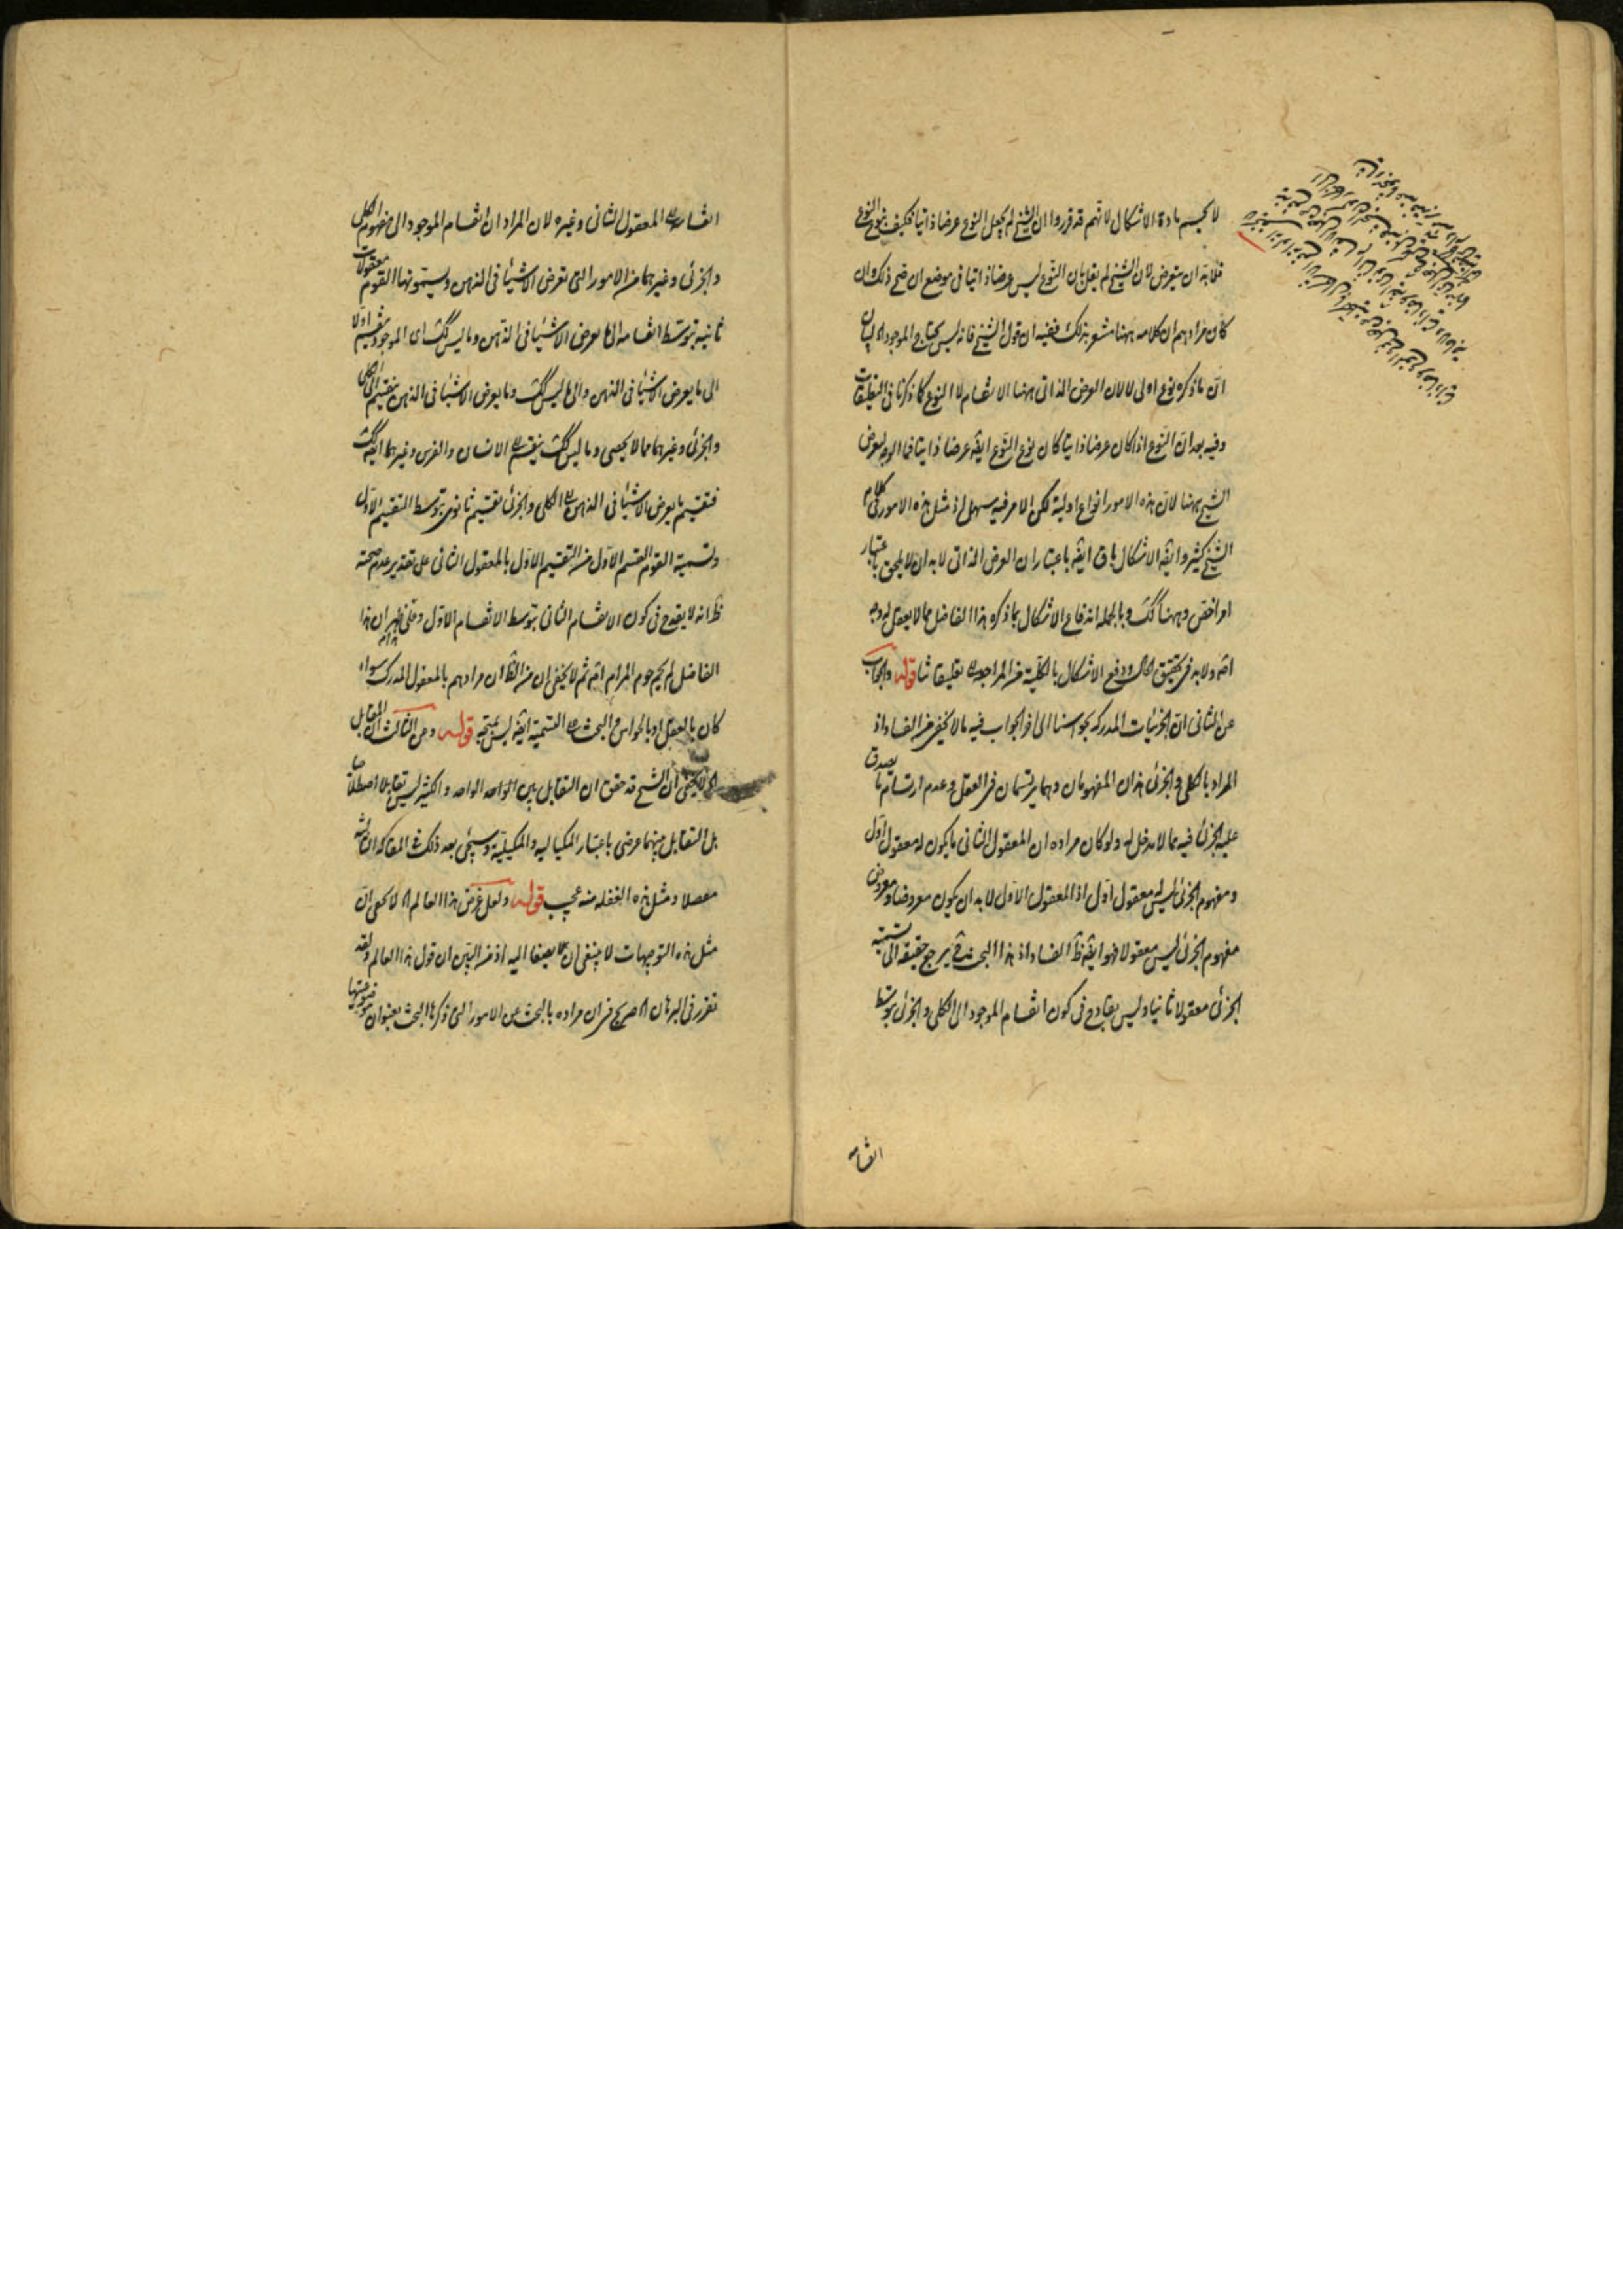 لا يحسم مادة الاشكال لانهم قد قرروا ان الشيخ لم يجعل النوع عرضا ذاتيا فكيف بنوع النوع
فلابد ان يتعرض لان الشيخ لم يقل بان النوع ليس عرضا ذاتيا فى موضع ان صح ذلك وان
كان مرادهم ان كلامه ههنا مشعر بذلك ففيه ان قول الشيخ فانه ليس يحتاج الموجود
ان ما ذكره نوع اولى لا لان العرض الذاتى ههنا الانقسام لا النوع كما ذكرنا فى التعليقات
وفيه بعد ان النوع اذا كان عرضا ذاتيا كان نوع النوع ايضه عرضا ذاتيا فما الوجه لتعرض
الشيخ ههنا لان هذه الامور انواع اولية لكن الامر فيه سهل اذ مثل هذه الامور فى كلام
الشيخ كثير وايضه الاشكال باق ايضه باعتبار ان العرض الذاتى لابد ان لا يلحق باعتبار
امر اخص وههنا كك وبالجملة اندفاع الاشكال بما ذكره هذا الفاضل مما لا يعقل له وجه
اصه ولابد فى تحقيق الحال ودفع الاشكال بالكلية من المراجعة الى تعليقاتنا قوله والجواب
عن الثانى ان الجزئيات المدركه بحواسنا الى اخر الجواب فيه ما لا يخفى من الفساد اذ
المراد بالكلى والجزئى هذان المفهومان وهما يرتسمان فى العقل وعدم ارتسام ما يصدق
عليه الجزئى فيه مما لا مدخل له ولو كان مراده ان المعقول الثانى ما يكون له معقول اول
ومفهوم الجزئى ليس له معقول اول اذ المعقول الاول لابد ان يكون معروضا ومعروض
مفهوم الجزئى ليس معقولا فهو ايضه ظ الفساد اذ هذا البحث فى يرجع حقيقه الى تسمية
الجزئى معقولا ثانيا وليس بقادح فى كون انقسام الموجود الى الكلى والجزئى بتوسط
انقسامه
انقسامه الى المعقول الثانى وغيره لان المراد ان انقسام الموجود الى مفهوم الكلى
والجزئى وغيرهما من الامور التى تعرض الاشياء فى الذهن ويسمونها القوم معقولات
ثانية بتوسط انقسامه الى ما يعرض الاشياء فى الذهن وما ليس كك اى الموجود ينقسم اولا
الى ما يعرض الاشياء فى الذهن والى ما ليس كك وما يعرض الاشياء فى الذهن ينقسم الى الكلى
والجزئى وغيرهما مما لا يحصى وما ليس كك ينقسم الى الانسان والفرس وغيرهما ايضه كك
فتقسيم ما يعرض الاشياء فى الذهن الى الكلى والجزئى تقسيم ثانوى بتوسط التقسيم الاول
وتسمية القوم القسم الاول من التقسيم الاول بالمعقول الثانى على تقدير عدم صحته
ظ انه لا يقدح فى كون الانقسام الثانى بتوسط الانقسام الاول وظنى ان هذا
الفاضل لم يحم حوم المرام اصه ثم لا يخفى ان من الظ ان مرادهم بالمعقول المدرك سواء
كان بالعقل او بالحواس والبحث فى التسمية ايضه ليس بمتجه قوله وعن الثالث ان المقابل
الخ لا يخفى ان الشيخ قد حقق ان التقابل بين الواحد الواحد والكثير ليس تقابلا اصطلاحيا
بل التقابل بينهما عرضى باعتبار المكيالية والمكيلية وسيجئ بعد ذلك فى المقالة الثالثة
مفصلا ومثل هذه الغفلة منه عجيب قوله ولعل غرض هذا العالم اه لا يخفى ان
مثل هذه التوجيهات لا ينبغى ان يصغا اليه اذ من البين ان قول هذا العالم ولقد
تقرر فى البرهان اه صريح فى ان مراده بالبحث عن الامور التى ذكرها البحث بعنوان موضوعيتها